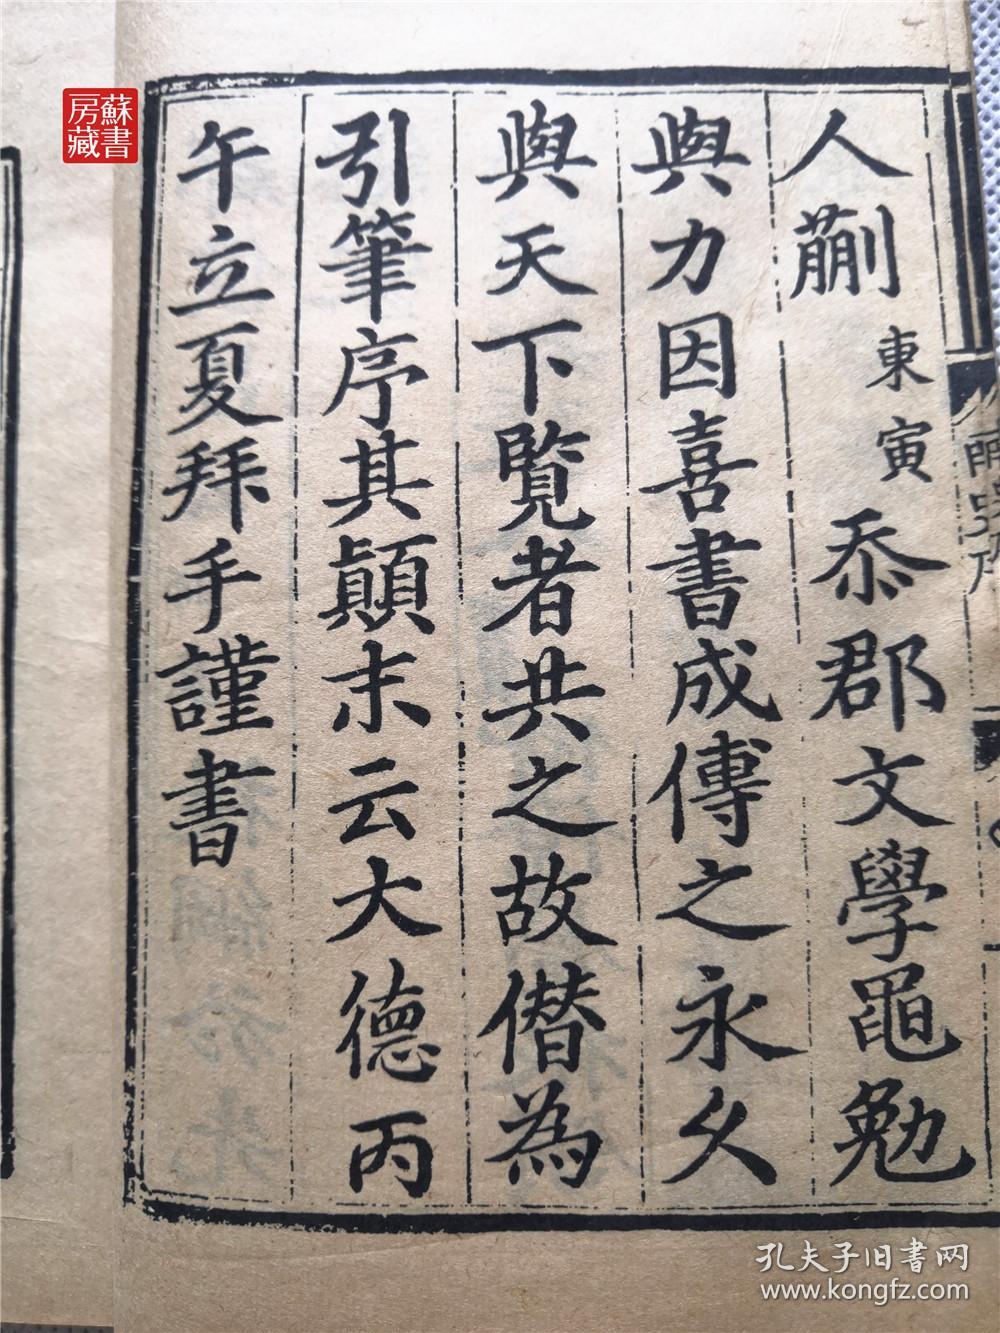 人蒯東寅忝郡文學黽勉
與力因喜書成傳之永久
與天下覧者共之故僭為
引筆序其顛末云大德丙
午立夏拜手謹書
蘇書
房藏
孔夫子旧書网
www.kongfz.com